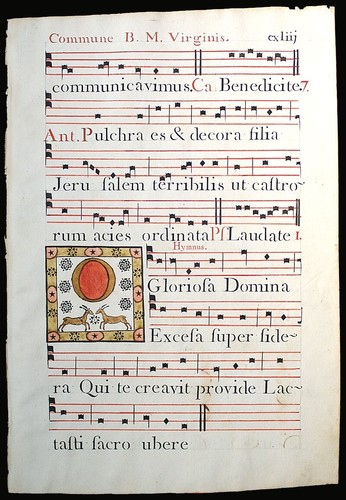 Commune B. M. Virginis. cxliij
communicavimus. Ca Benedicite. 7.
Ant. Pulchra es & decora filia
Jeru ſalem terribilis ut caſtro~
rum acies ordinata Pſ Laudate 1.
Hymnus.
O Glorioſa Domina
Excelſa ſuper ſide~
ra Qui te creavit provide Lac~
taſti ſacro ubere